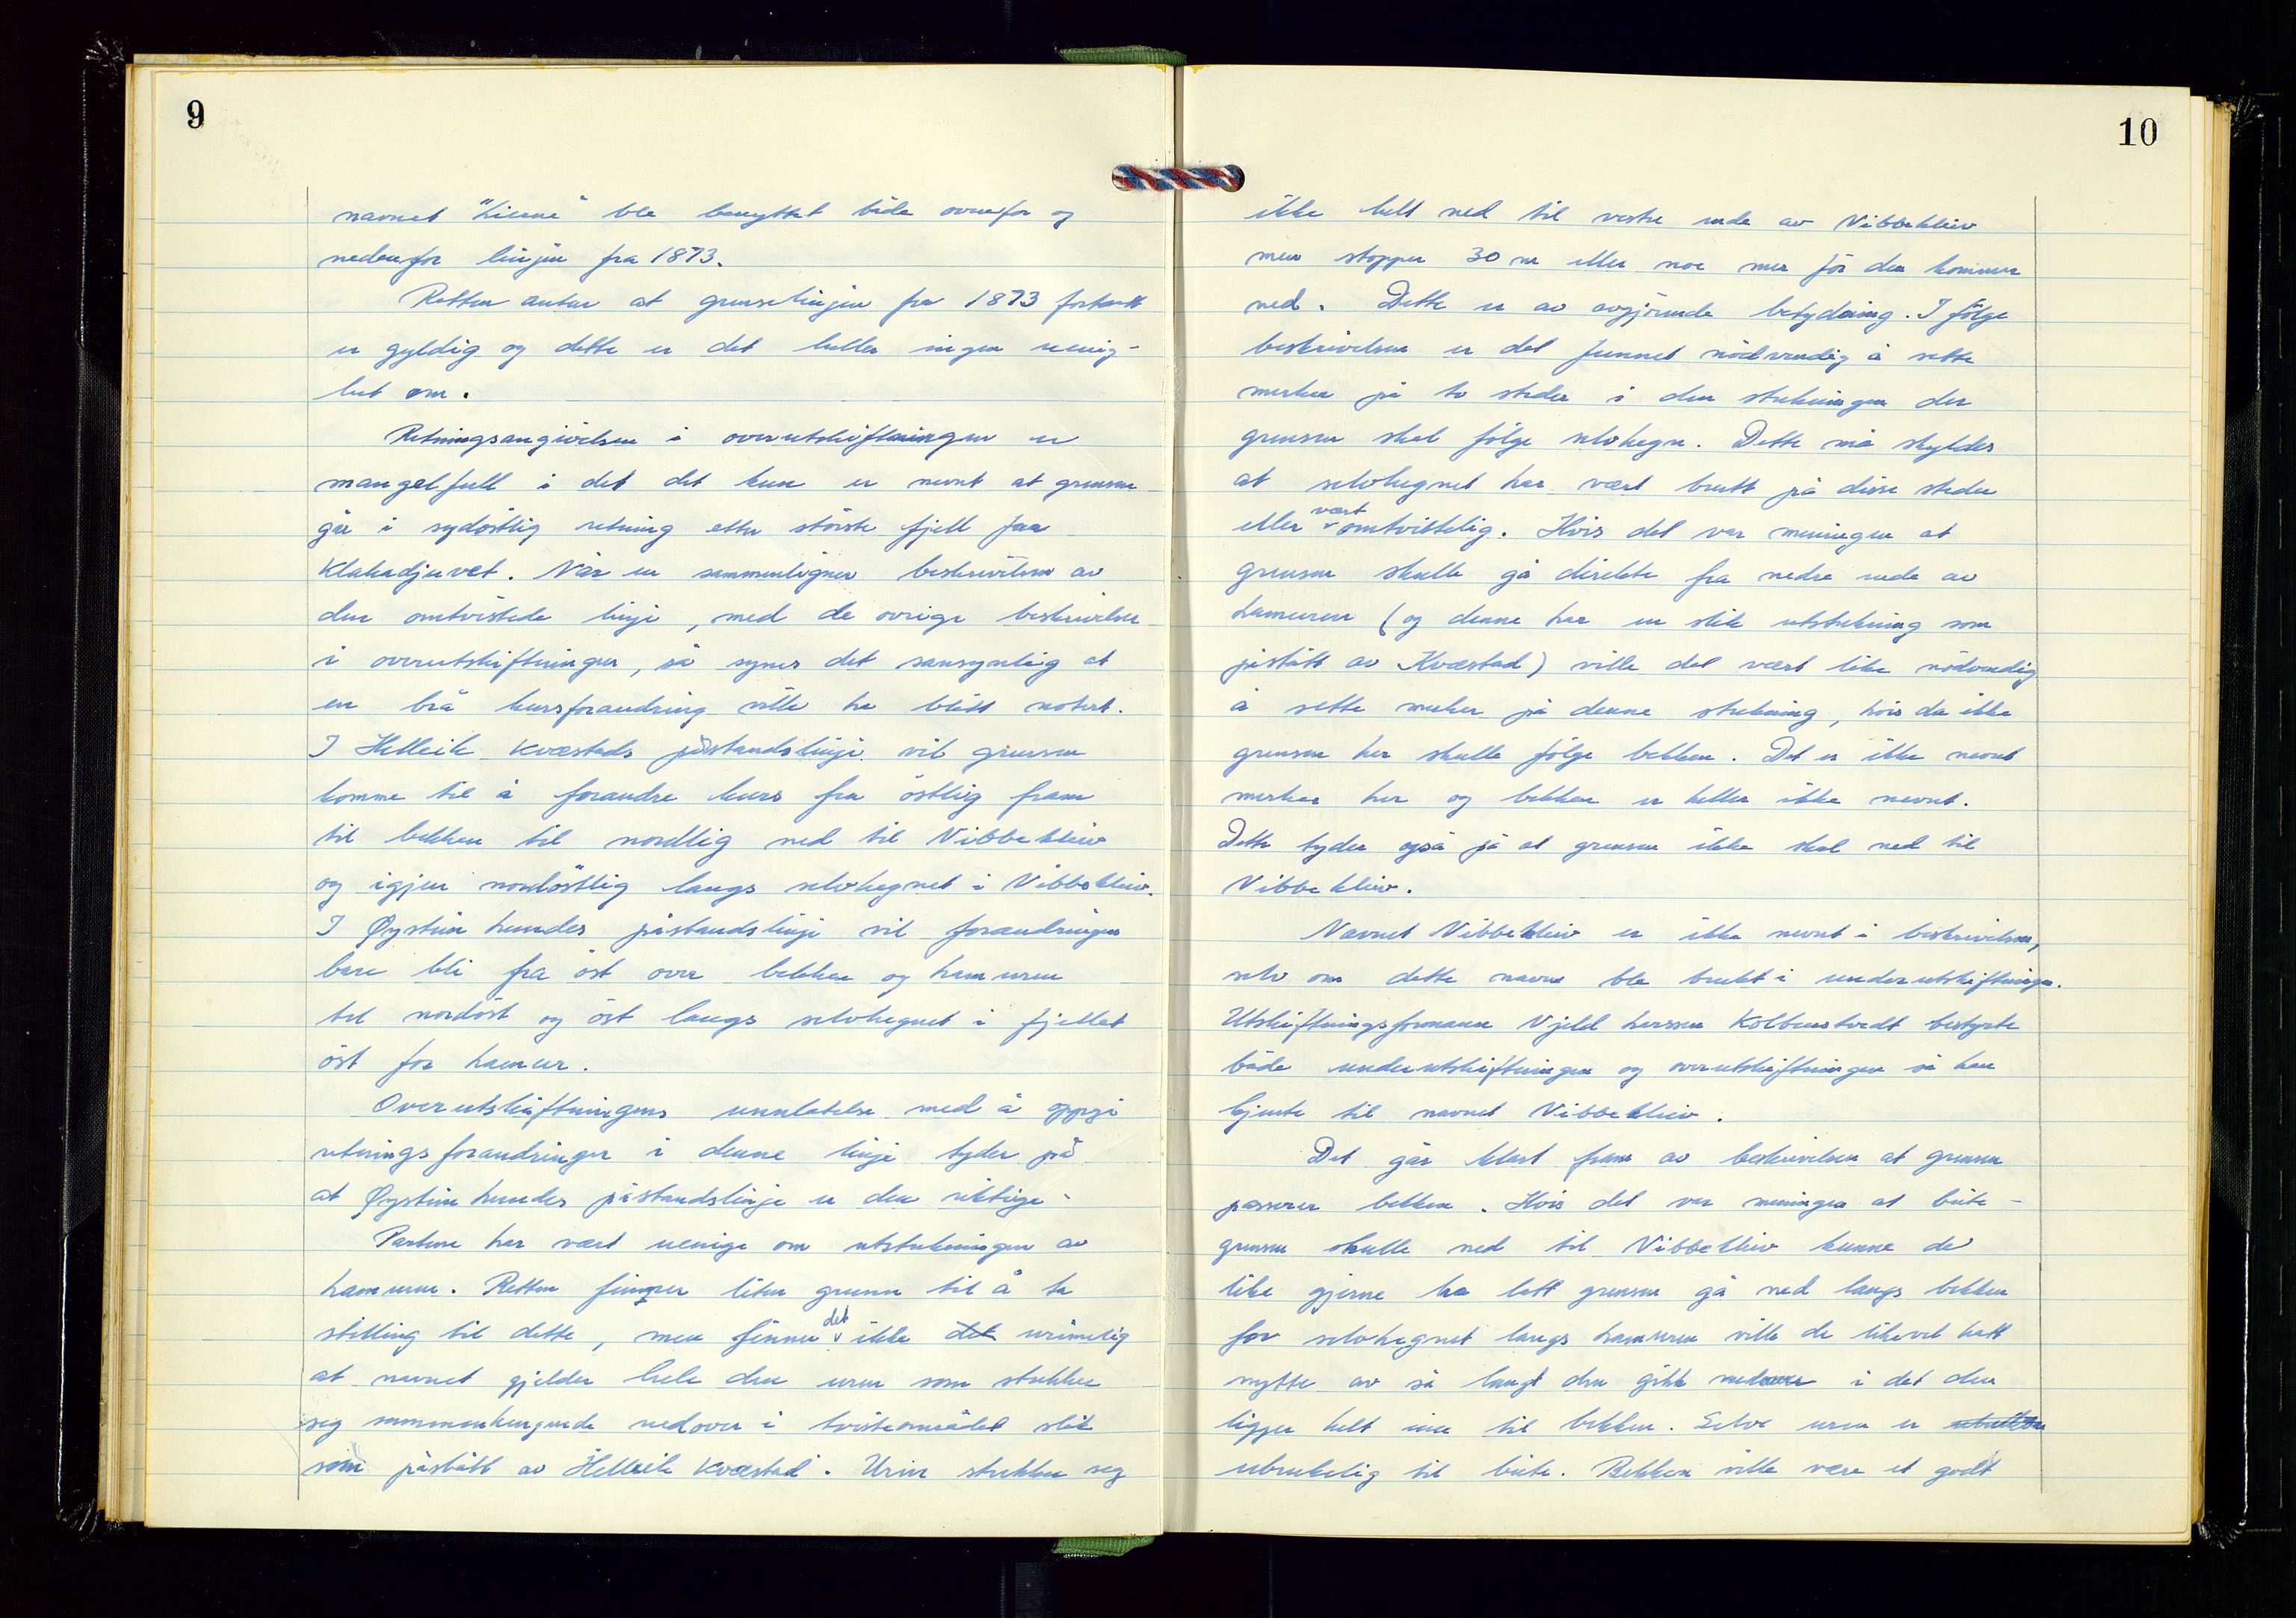 9
navnet "Liene" ble benyttet både ovenfor og
nedenfor linjen fra 1873.
Retten antar at grenselinjen fra 1873 fortsatt
er gyldig og dette er det heller ingen uenig-
het om.
Retningsangivelsen i overutskiftningen er
mangelfull i det det kun er nevnt at grensen
går i sydöstlig retning etter störste fjell fra
Klakadjuvet. Når en sammenligner beskrivelsen av
den omtvistede linje, med de ovrige beskrivelser
i overutskiftningen, så synes det sansynlig at
en brå kursforandring ville ha blitt notert.
I Helleik Kvæstads påstandslinje vil grensen
komme til å forandre kurs fra östlig fram
til bekken til nordlig ned til Vibbekleiv
og igjen nordöstlig langs selvhegnet i Vibbekleiv.
I Øystein Lundes påstandslinje vil forandringen
bare bli fra öst over bekken og hamuren
til nordöst og öst langs selvhegnet i fjellet
öst for hamur.
Overutskiftningens unnlatelse med å oppgi
retningsforandringer i denne linje tyder på
at Øystein Lundes påstandslinje er den riktige.
Partene har vært uenige om utstrekningen av
hamuren. Retten finner liten grunn til å ta
stilling til dette, men finner det ikke det urimelig
at navnet gjelder hele den uren som strekker
seg sammenhengende nedover i tvisteområdet slik
som påstått av Helleik Kvæstad. Uren strekker seg
10
ikke helt ned til vestre ende av Vibbekleiv
men stopper 30 m eller noe mer för den kommer
ned. Dette er av avgjörende betydning. I fölge
beskrivelsen er det funnet nödvendig å sette
merker på to steder i den strekningen der
grensen skal fölge selvhegn. Dette må skyldes
at selvhegnet har vært brutt på disse steder
eller vært omtvistelig. Hvis det var meningen at
grensen skulle gå direkte fra nedre ende av
hamuren (og denne har en slik utstrekning som
påstått av Kvæstad) ville det vært like nödvendig
å sette merker på denne strekning, hvis da ikke
grensen her skulle fölge bekken. Det er ikke nevnt
merker her og bekken er heller ikke nevnt.
Dette tyder også på at grensen ikke skal ned til
Vibbekleiv.
Navnet Vibbekleiv er ikke nevnt i beskrivelsen,
selv om dette navn ble brukt i underutskiftningen.
Utskiftningsformann Kjeld Larssen Kolbenstvedt bestyrte
både underutskiftningen og overutskiftningen så han
kjente til navnet Vibbekleiv.
Det går klart fram av beskrivelsen at grensen
passerer bekken. Hvis det var meningen at beite-
grensen skulle ned til Vibbekleiv kunne de
like gjerne ha latt grensen gå ned langs bekken
for selvhegnet langs hamuren ville de likevel hatt
nytte av så langt den gikk nedover i det den
ligger helt inn til bekken. Selve uren er
ubrukelig til beite. Bekken ville være et godt